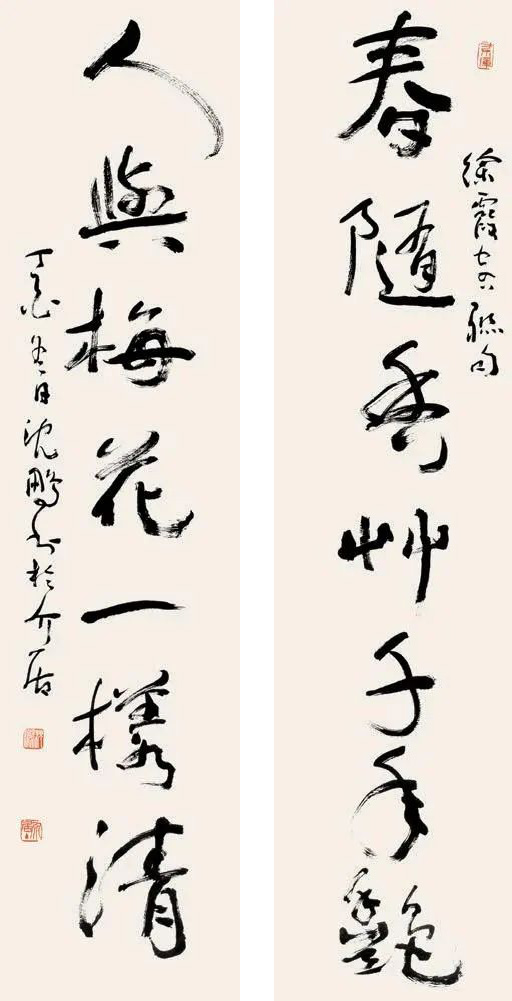 徐霞客聯句
春隨香艸千年艷
人與梅花一樣清
丁亥冬日沈鵬書於介居